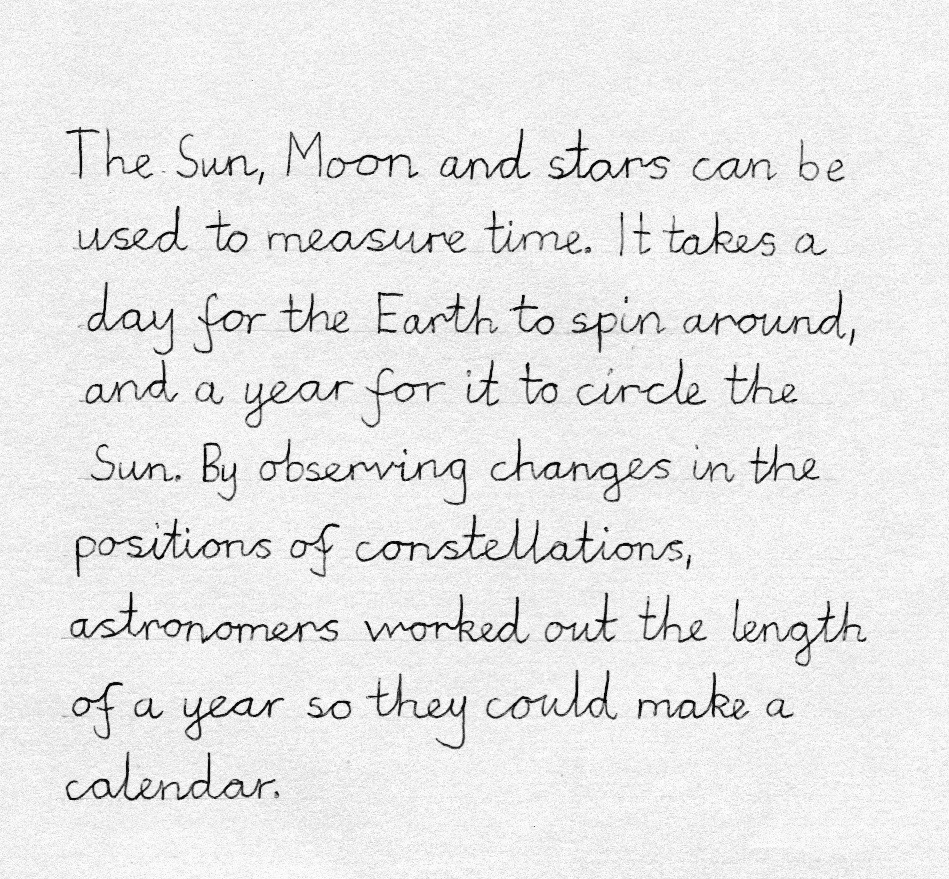 The Sun, Moon and stars can be
used to measure time. It takes a
day for the Earth to spin around,
and a year for it to circle the
Sun. By observing changes in the
positions of constellations,
astronomers worked out the length
of a year so they could make a
calendar.